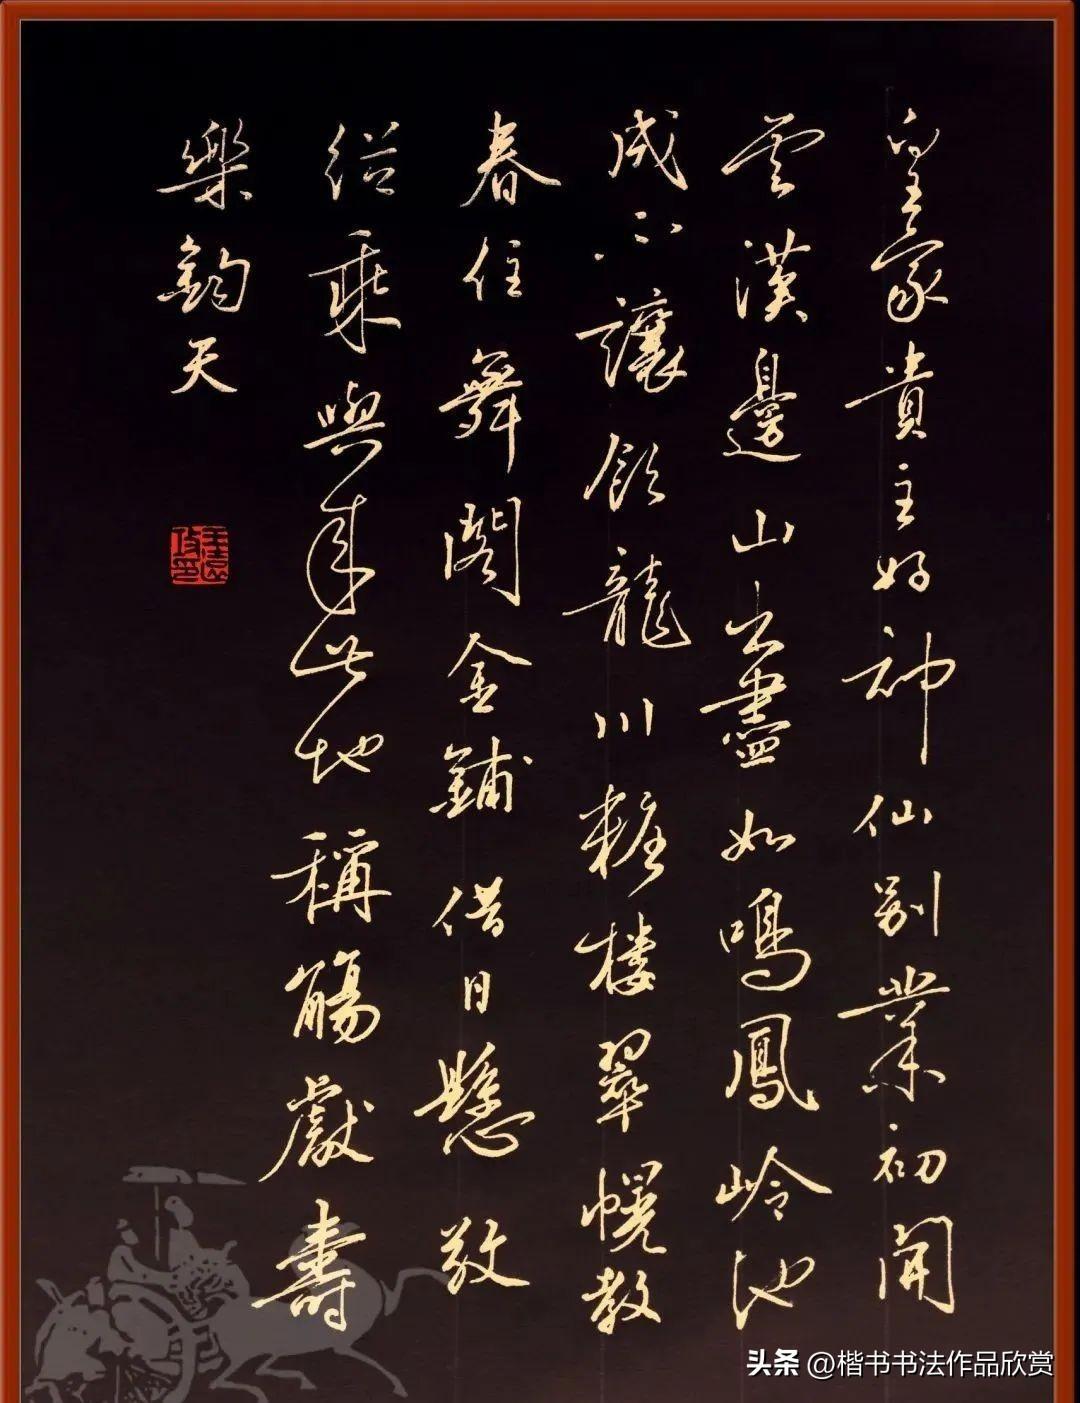 皇家貴主好神仙别業初開
雲漢邊山出盡如鳴鳳岭池
成不讓飲龍川粧楼翠幌教
春住舞閣金鋪借日懸敬
從乘輿來此地稱觴獻壽
樂鈞天
头条 @楷书书法作品欣赏